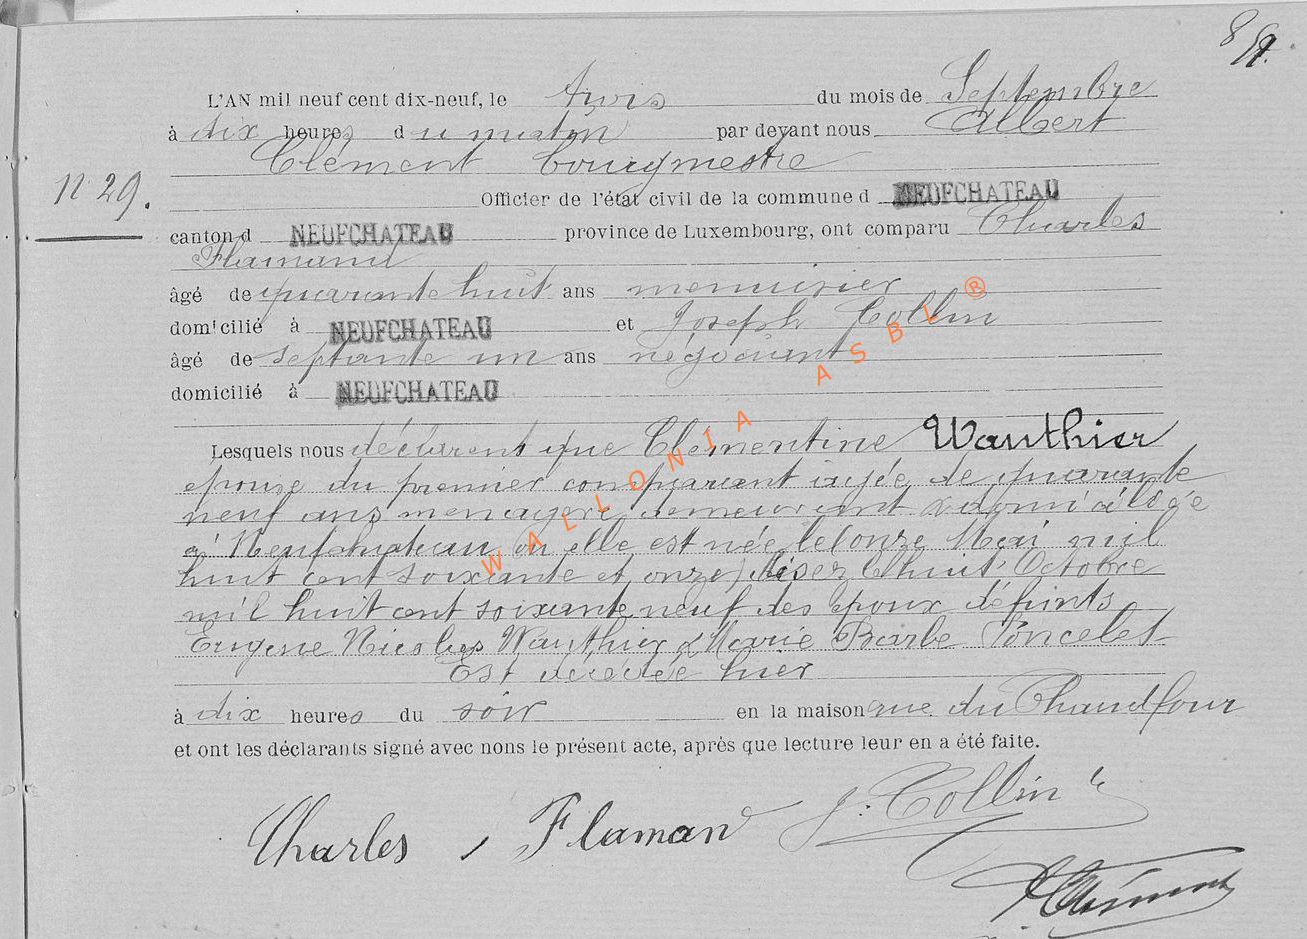 8/9.
L'AN mil neuf cent dix-neuf, le trois du mois de Septembre
à dix heures du matin par devant nous Albert
Clément bourgmestre
N 29.
Officier de l'état civil de la commune d NEUFCHATEAU
canton d NEUFCHATEAU province de Luxembourg, ont comparu Charles
Flamand
âgé de quarante huit ans menuisier
domicilié à NEUFCHATEAU et Joseph Collin
âgé de septante un ans négociant
domicilié à NEUFCHATEAU
Lesquels nous déclarent que Clementine Wauthier
epouse du premier comparant agée de quarante
neuf ans menagere demeurant & domiciliée
à Neufchateau où elle est née le onze Mai mil
huit cent soixante et onze) lisez le huit Octobre
mil huit cent soixante neuf des époux défunts
Eugene Nicolas Wauthier & Marie Barbe Poncelet
Est décédée hier
à dix heures du soir en la maison rue du Chaudfour
et ont les déclarants signé avec nons le présent acte, après que lecture leur en a été faite.
Charles Flamand J. Collin
AClément
WALLONIA ASBL ®